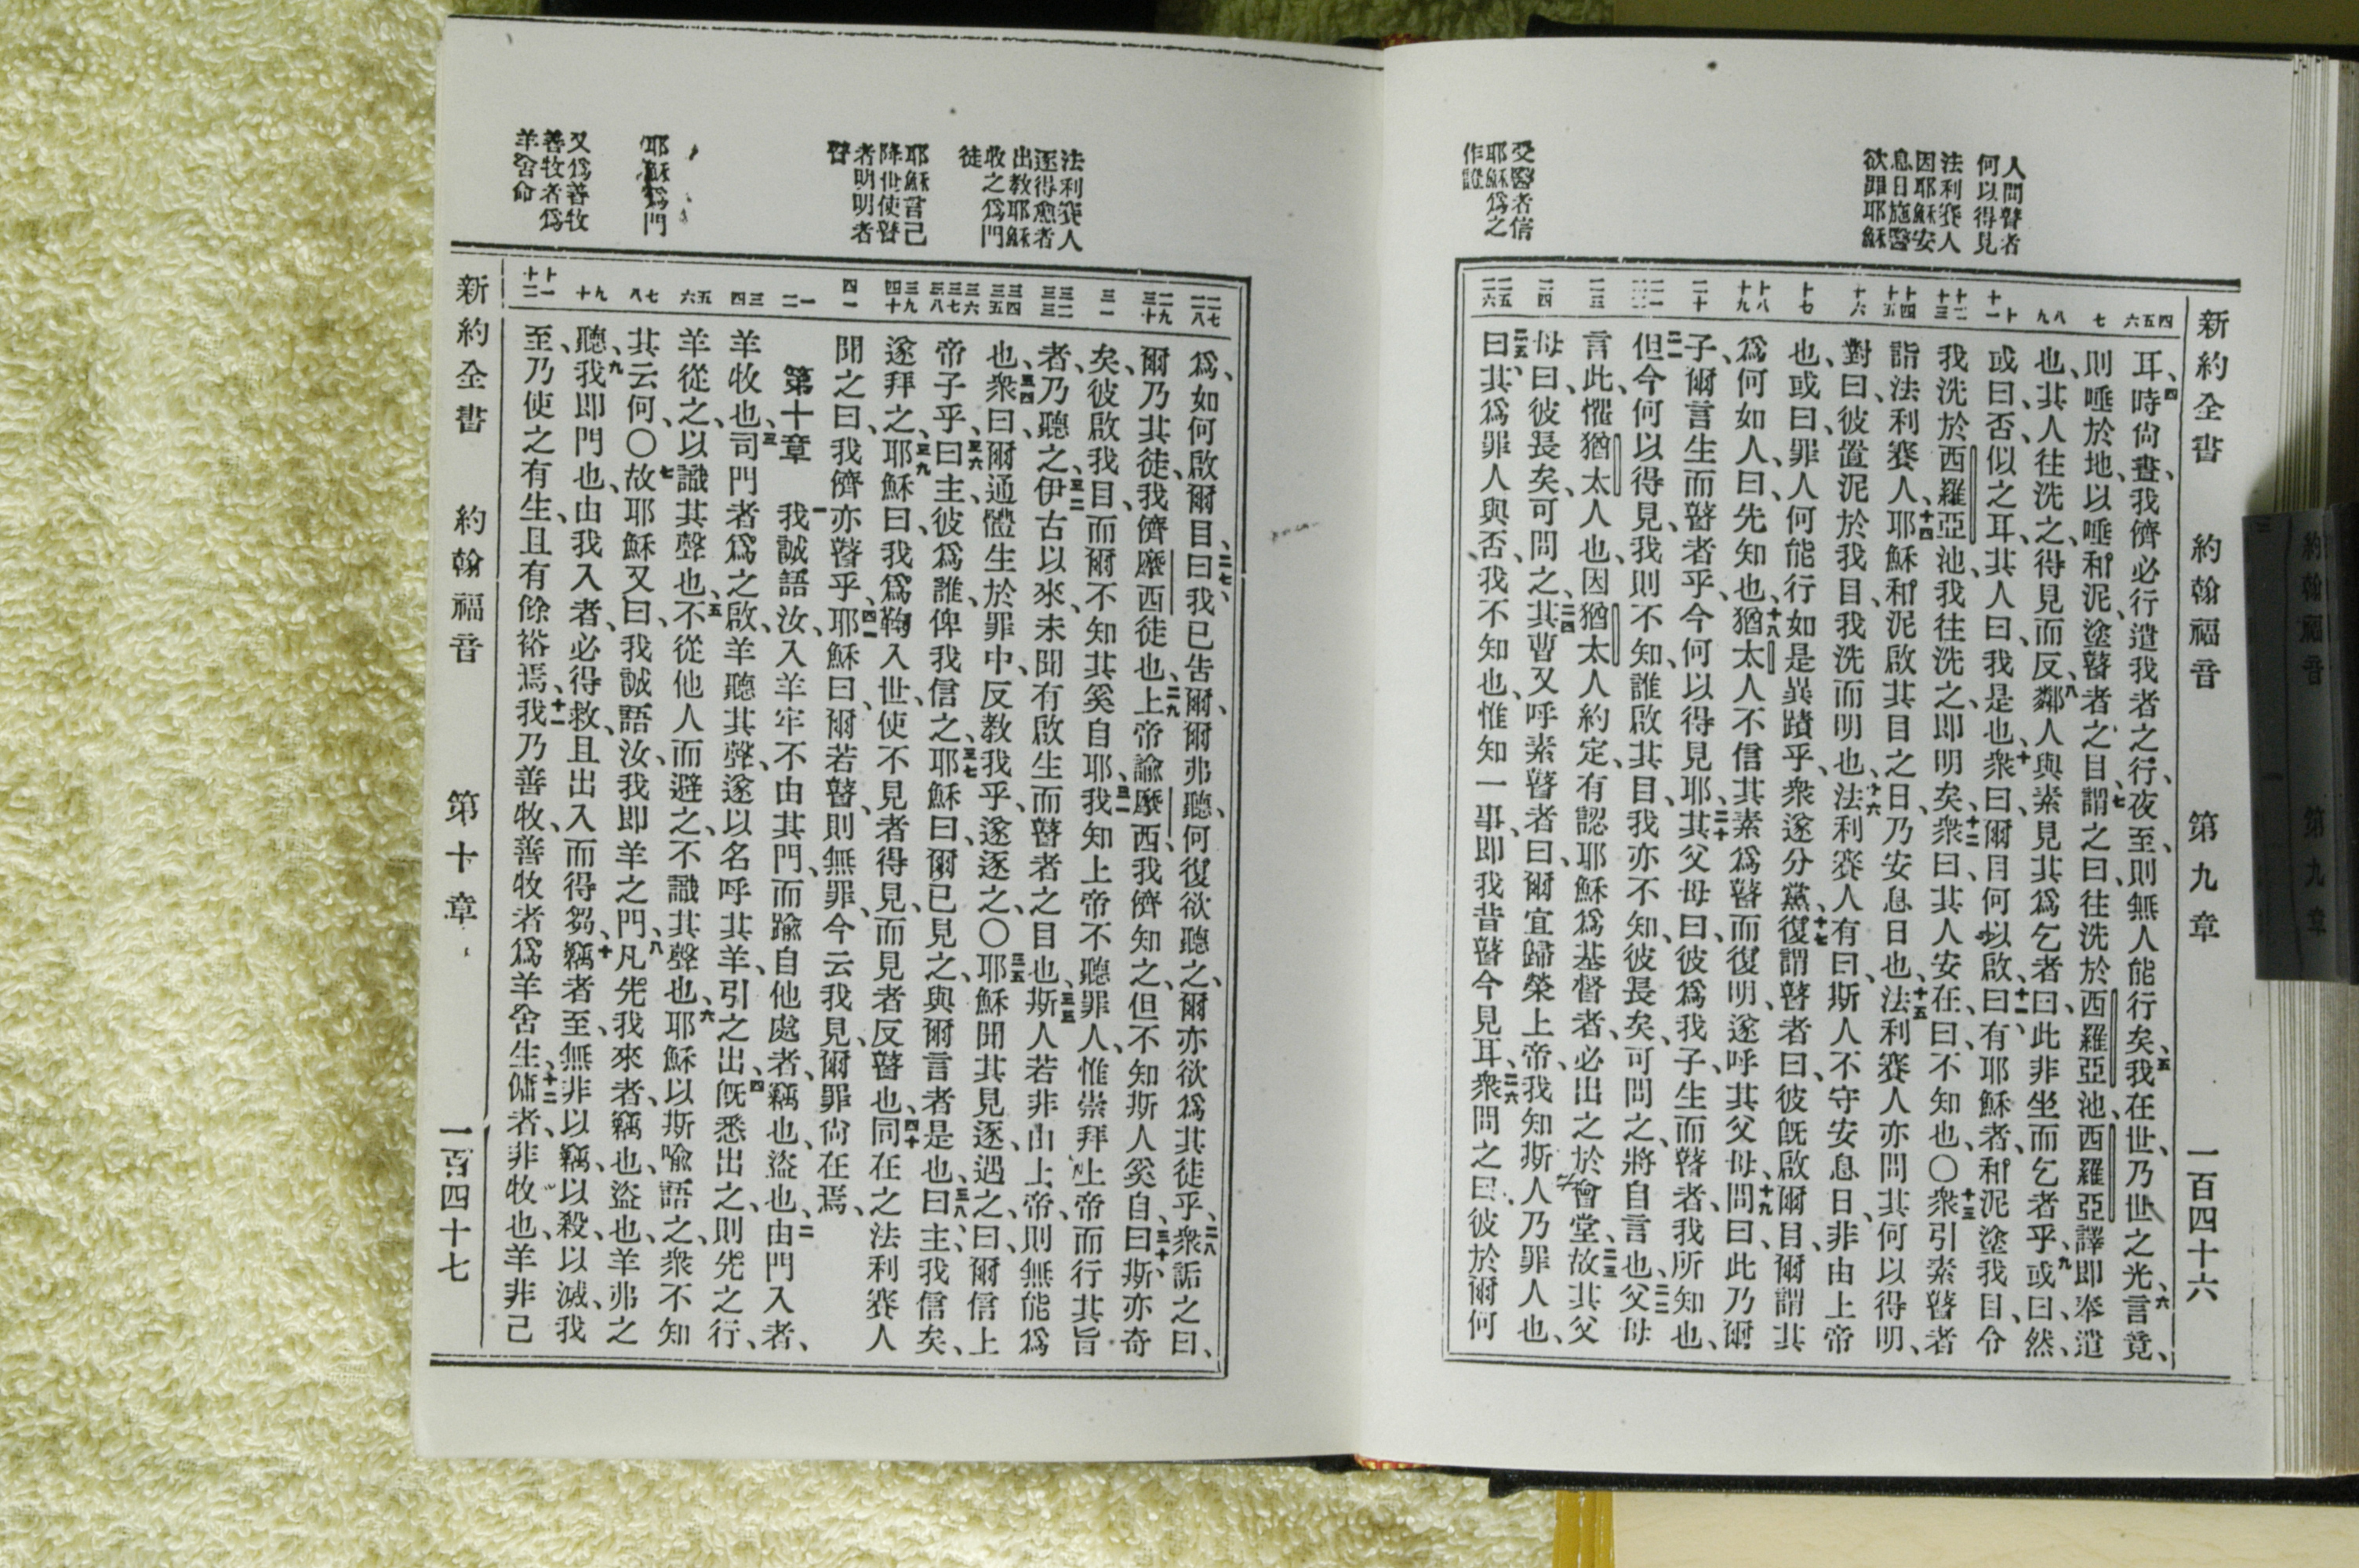 新約全書 約翰福音 第九章 一百四十六
人問瞽者
何以得見
法利賽人
因耶穌安
息日施醫
欲罪耶穌
受醫者信
耶穌爲之
作證
四 五 六
七
八 九
十 十一
十二 十三
十四 十五
十六
十七
十八 十九
二十
二一 二二
二三
二四
二五 二六
耳、四時尙晝、我儕必行遣我者之行、夜至、則無人能行矣、五我在世、乃世之光、六言竟、
則唾於地、以唾和泥、塗瞽者之目、七謂之曰、往洗於西羅亞池、西羅亞譯即奉遣
也、其人往洗之、得見而反、八鄰人與素見其爲乞者曰、此非坐而乞者乎、九或曰、然、
或曰、否、似之耳、其人曰、我是也、十衆曰、爾目何以啟、十一曰、有耶穌者、和泥塗我目、令
我洗於西羅亞池、我往洗之、即明矣、十二衆曰、其人安在、曰、不知也、〇十三衆引素瞽者
詣法利賽人、十四耶穌和泥啟其目之日、乃安息日也、十五法利賽人亦問其何以得明、
對曰、彼置泥於我目、我洗而明也、十六法利賽人有曰、斯人不守安息日、非由上帝
也、或曰、罪人何能行如是異蹟乎、衆遂分黨、十七復謂瞽者曰、彼旣啟爾目、爾謂其
爲何如人、曰、先知也、十八猶太人不信其素爲瞽而復明、遂呼其父母、十九問曰、此乃爾
子、爾言生而瞽者乎、今何以得見耶、二十其父母曰、彼爲我子、生而瞽者、我所知也、
二一但今何以得見、我則不知、誰啟其目、我亦不知、彼長矣、可問之、將自言也、二二父母
言此、懼猶太人也、因猶太人約定、有認耶穌爲基督者、必出之於會堂、二三故其父
母曰、彼長矣、可問之、二四其曹又呼素瞽者曰、爾宜歸榮上帝、我知斯人乃罪人也、
二五曰、其爲罪人與否、我不知也、惟知一事、即我昔瞽今見耳、二六衆問之曰、彼於爾何
法利賽人
逐得愈者
出教耶穌
收之爲門
徒
耶穌言己
降世使瞽
者明明者
瞽
耶穌爲門
又爲善牧
善牧者爲
羊舍命
二七 二八
二九 三十
三一
三二 三三
三四 三五
三六 三七 三八
三九 四十
四一
一 二
三 四
五 六
七 八
九 十
十一 十二
爲、如何啟爾目、二七曰、我已告爾、爾弗聽、何復欲聽之、爾亦欲爲其徒乎、二八衆詬之曰、
爾乃其徒、我儕摩西徒也、二九上帝諭摩西、我儕知之、但不知斯人奚自、三十曰、斯亦奇
矣、彼啟我目、而爾不知其奚自耶、三一我知上帝不聽罪人、惟崇拜上帝而行其旨
者、乃聽之、三二伊古以來、未聞有啟生而瞽者之目也、三三斯人若非由上帝、則無能爲
也、三四衆曰、爾通體生於罪中、反教我乎、遂逐之、〇三五耶穌聞其見逐、遇之、曰、爾信上
帝子乎、三六曰、主、彼爲誰、俾我信之、三七耶穌曰、爾已見之、與爾言者是也、三八曰、主、我信矣、
遂拜之、三九耶穌曰、我爲鞫入世、使不見者得見、而見者反瞽也、四十同在之法利賽人
聞之曰、我儕亦瞽乎、四一耶穌曰、爾若瞽、則無罪、今云我見、爾罪尙在焉、
第十章 一我誠語汝、入羊牢不由其門、而踰自他處者、竊也、盜也、二由門入者、
羊牧也、三司門者爲之啟、羊聽其聲、遂以名呼其羊、引之出、四旣悉出之、則先之行、
羊從之、以識其聲也、五不從他人而避之、不識其聲也、六耶穌以斯喻語之、衆不知
其云何、〇七故耶穌又曰、我誠語汝、我即羊之門、八凡先我來者、竊也、盜也、羊弗之
聽、九我即門也、由我入者、必得救、且出入而得芻、十竊者至、無非以竊、以殺、以滅、我
至、乃使之有生、且有餘裕焉、十一我乃善牧、善牧者爲羊舍生、十二傭者、非牧也、羊非己
新約全書 約翰福音 第十章 一百四十七
約翰福音 第九章